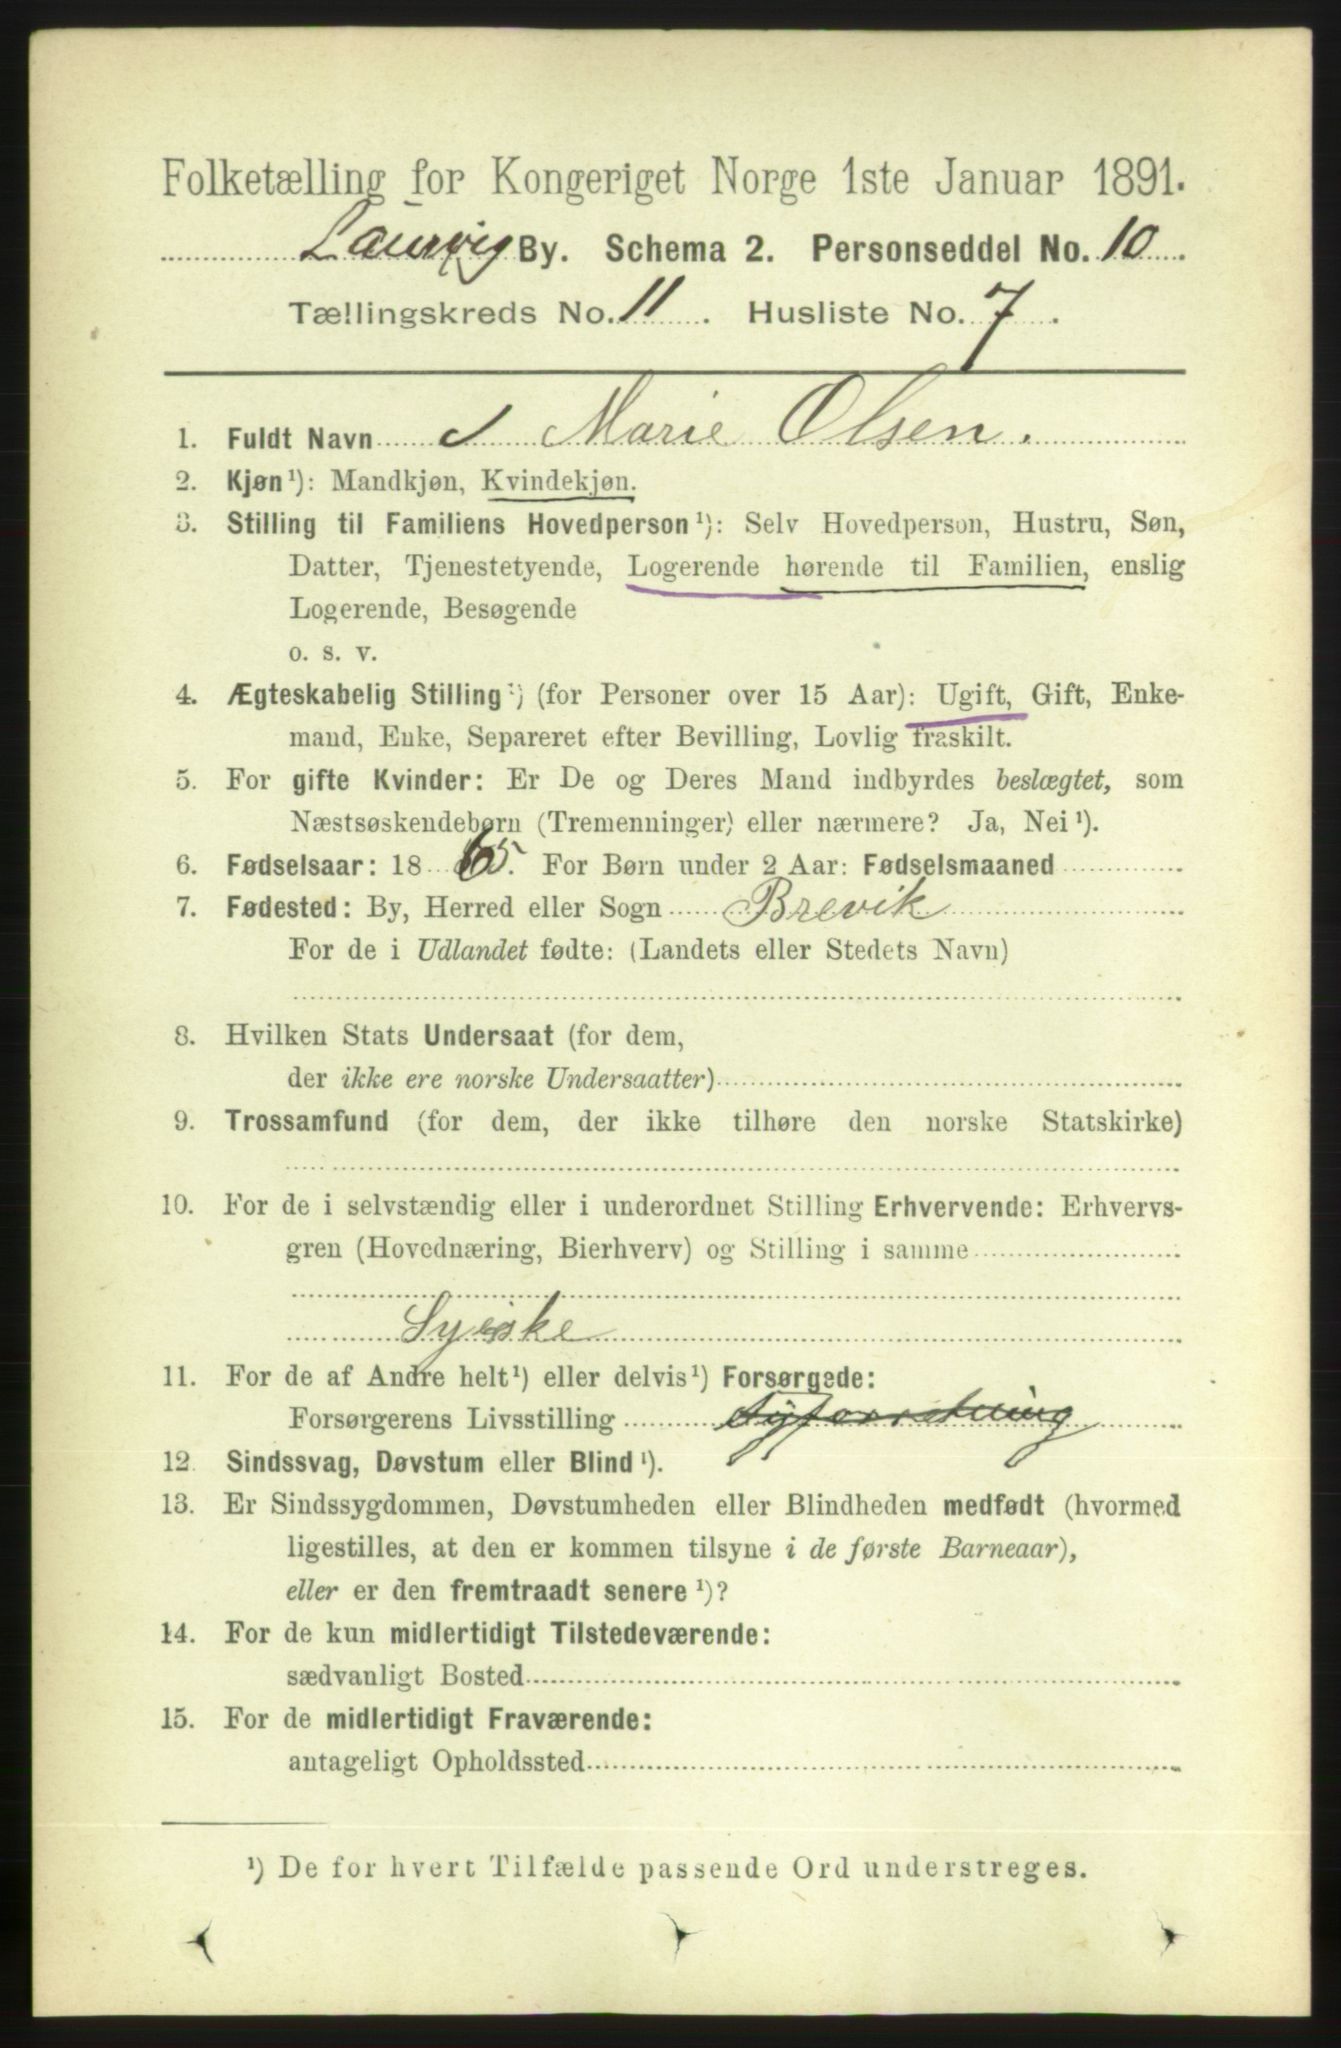 Folketælling for Kongeriget Norge 1ste Januar 1891.
Laurvig By. Schema 2. Personseddel No. 10.
Tællingskreds No. 11. Husliste No. 7.
1. Fuldt Navn Marie Olsen.
2. Kjøn¹): Mandkjøn, Kvindekjøn.
3. Stilling til Familiens Hovedperson¹): Selv Hovedperson, Hustru, Søn,
Datter, Tjenestetyende, Logerende hørende til Familien, enslig
Logerende, Besøgende
o. s. v.
4. Ægteskabelig Stilling¹) (for Personer over 15 Aar): Ugift, Gift, Enke-
mand, Enke, Separeret efter Bevilling, Lovlig fraskilt.
5. For gifte Kvinder: Er De og Deres Mand indbyrdes beslægtet, som
Næstsøskendebørn (Tremenninger) eller nærmere? Ja, Nei¹).
6. Fødselsaar: 1865. For Børn under 2 Aar: Fødselsmaaned
7. Fødested: By, Herred eller Sogn Brevik
For de i Udlandet fødte: (Landets eller Stedets Navn)
8. Hvilken Stats Undersaat (for dem,
der ikke ere norske Undersaatter)
9. Trossamfund (for dem, der ikke tilhøre den norske Statskirke)
10. For de i selvstændig eller i underordnet Stilling Erhvervende: Erhvervs-
gren (Hovednæring, Bierhverv) og Stilling i samme
Syerske
11. For de af Andre helt¹) eller delvis¹) Forsørgede:
Forsørgerens Livsstilling
12. Sindssvag, Døvstum eller Blind¹).
13. Er Sindssygdommen, Døvstumheden eller Blindheden medfødt (hvormed
ligestilles, at den er kommen tilsyne i de første Barneaar),
eller er den fremtraadt senere¹)?
14. For de kun midlertidigt Tilstedeværende:
sædvanligt Bosted
15. For de midlertidigt Fraværende:
antageligt Opholdssted
¹) De for hvert Tilfælde passende Ord understreges.